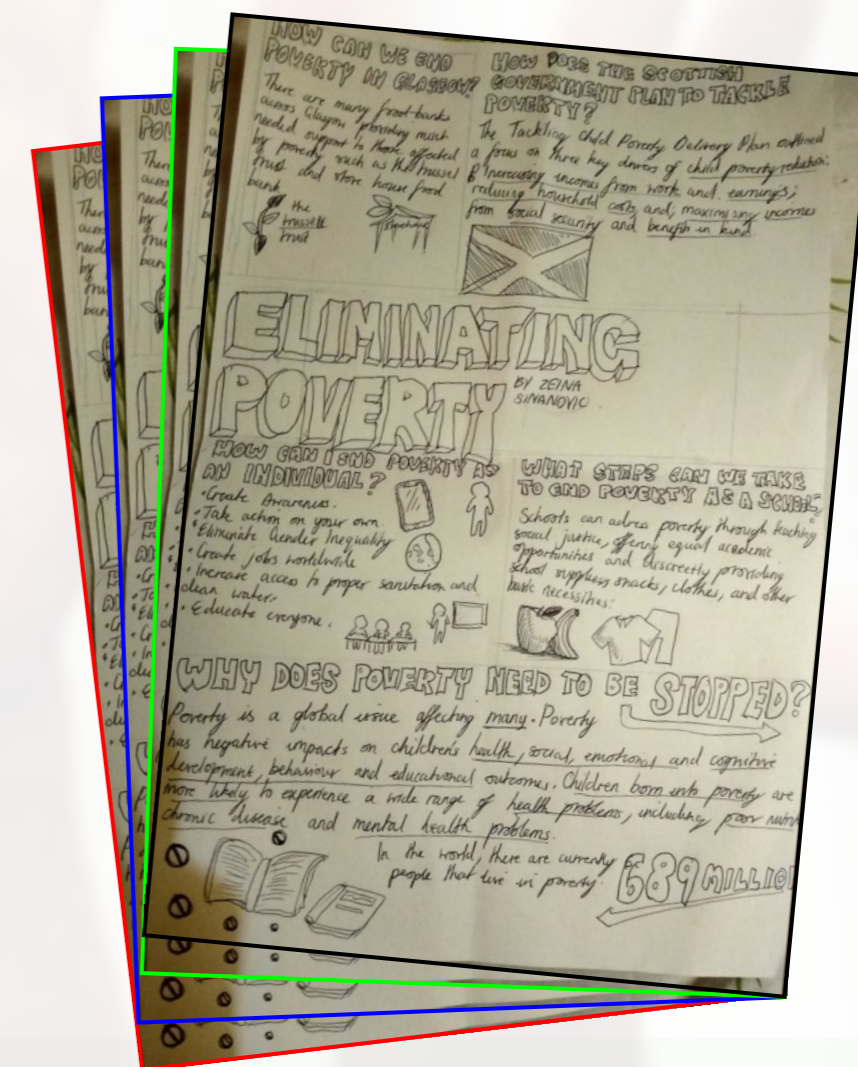 HOW CAN WE END
POVERTY IN GLASGOW?
There are many food banks
across Glasgow providing much
needed support to those affected
by poverty such as the trussel
trust and store house food
bank
the
trussell
trust
Storehouse
HOW DOES THE SCOTTISH
GOVERNMENT PLAN TO TACKLE
POVERTY?
The Tackling Child Poverty Delivery Plan outlined
a focus on three key drivers of child poverty reduction:
Increasing incomes from work and earnings;
reducing household costs and, maximising incomes
from social security and benefits in kind
ELIMINATING
POVERTY
BY ZEINA
SINANOVIC
HOW CAN I END POVERTY AS
AN INDIVIDUAL?
• Create Awareness.
• Take action on your own.
• Eliminate Gender Inequality
• Create jobs worldwide
• Increase access to proper sanitation and
clean water.
• Educate everyone.
WHAT STEPS CAN WE TAKE
TO END POVERTY AS A SCHOOL?
Schools can adress poverty through teaching
social justice, offering equal academic
opportunities and discreetly providing
school supplies, snacks, clothes, and other
basic necessities.
WHY DOES POVERTY NEED TO BE STOPPED?
Poverty is a global issue affecting many. Poverty
has negative impacts on children's health, social, emotional and cognitive
development, behaviour and educational outcomes. Children born into poverty are
more likely to experience a wide range of health problems, including poor
chronic disease and mental health problems.
In the world, there are currently 689 MILLION
people that live in poverty.